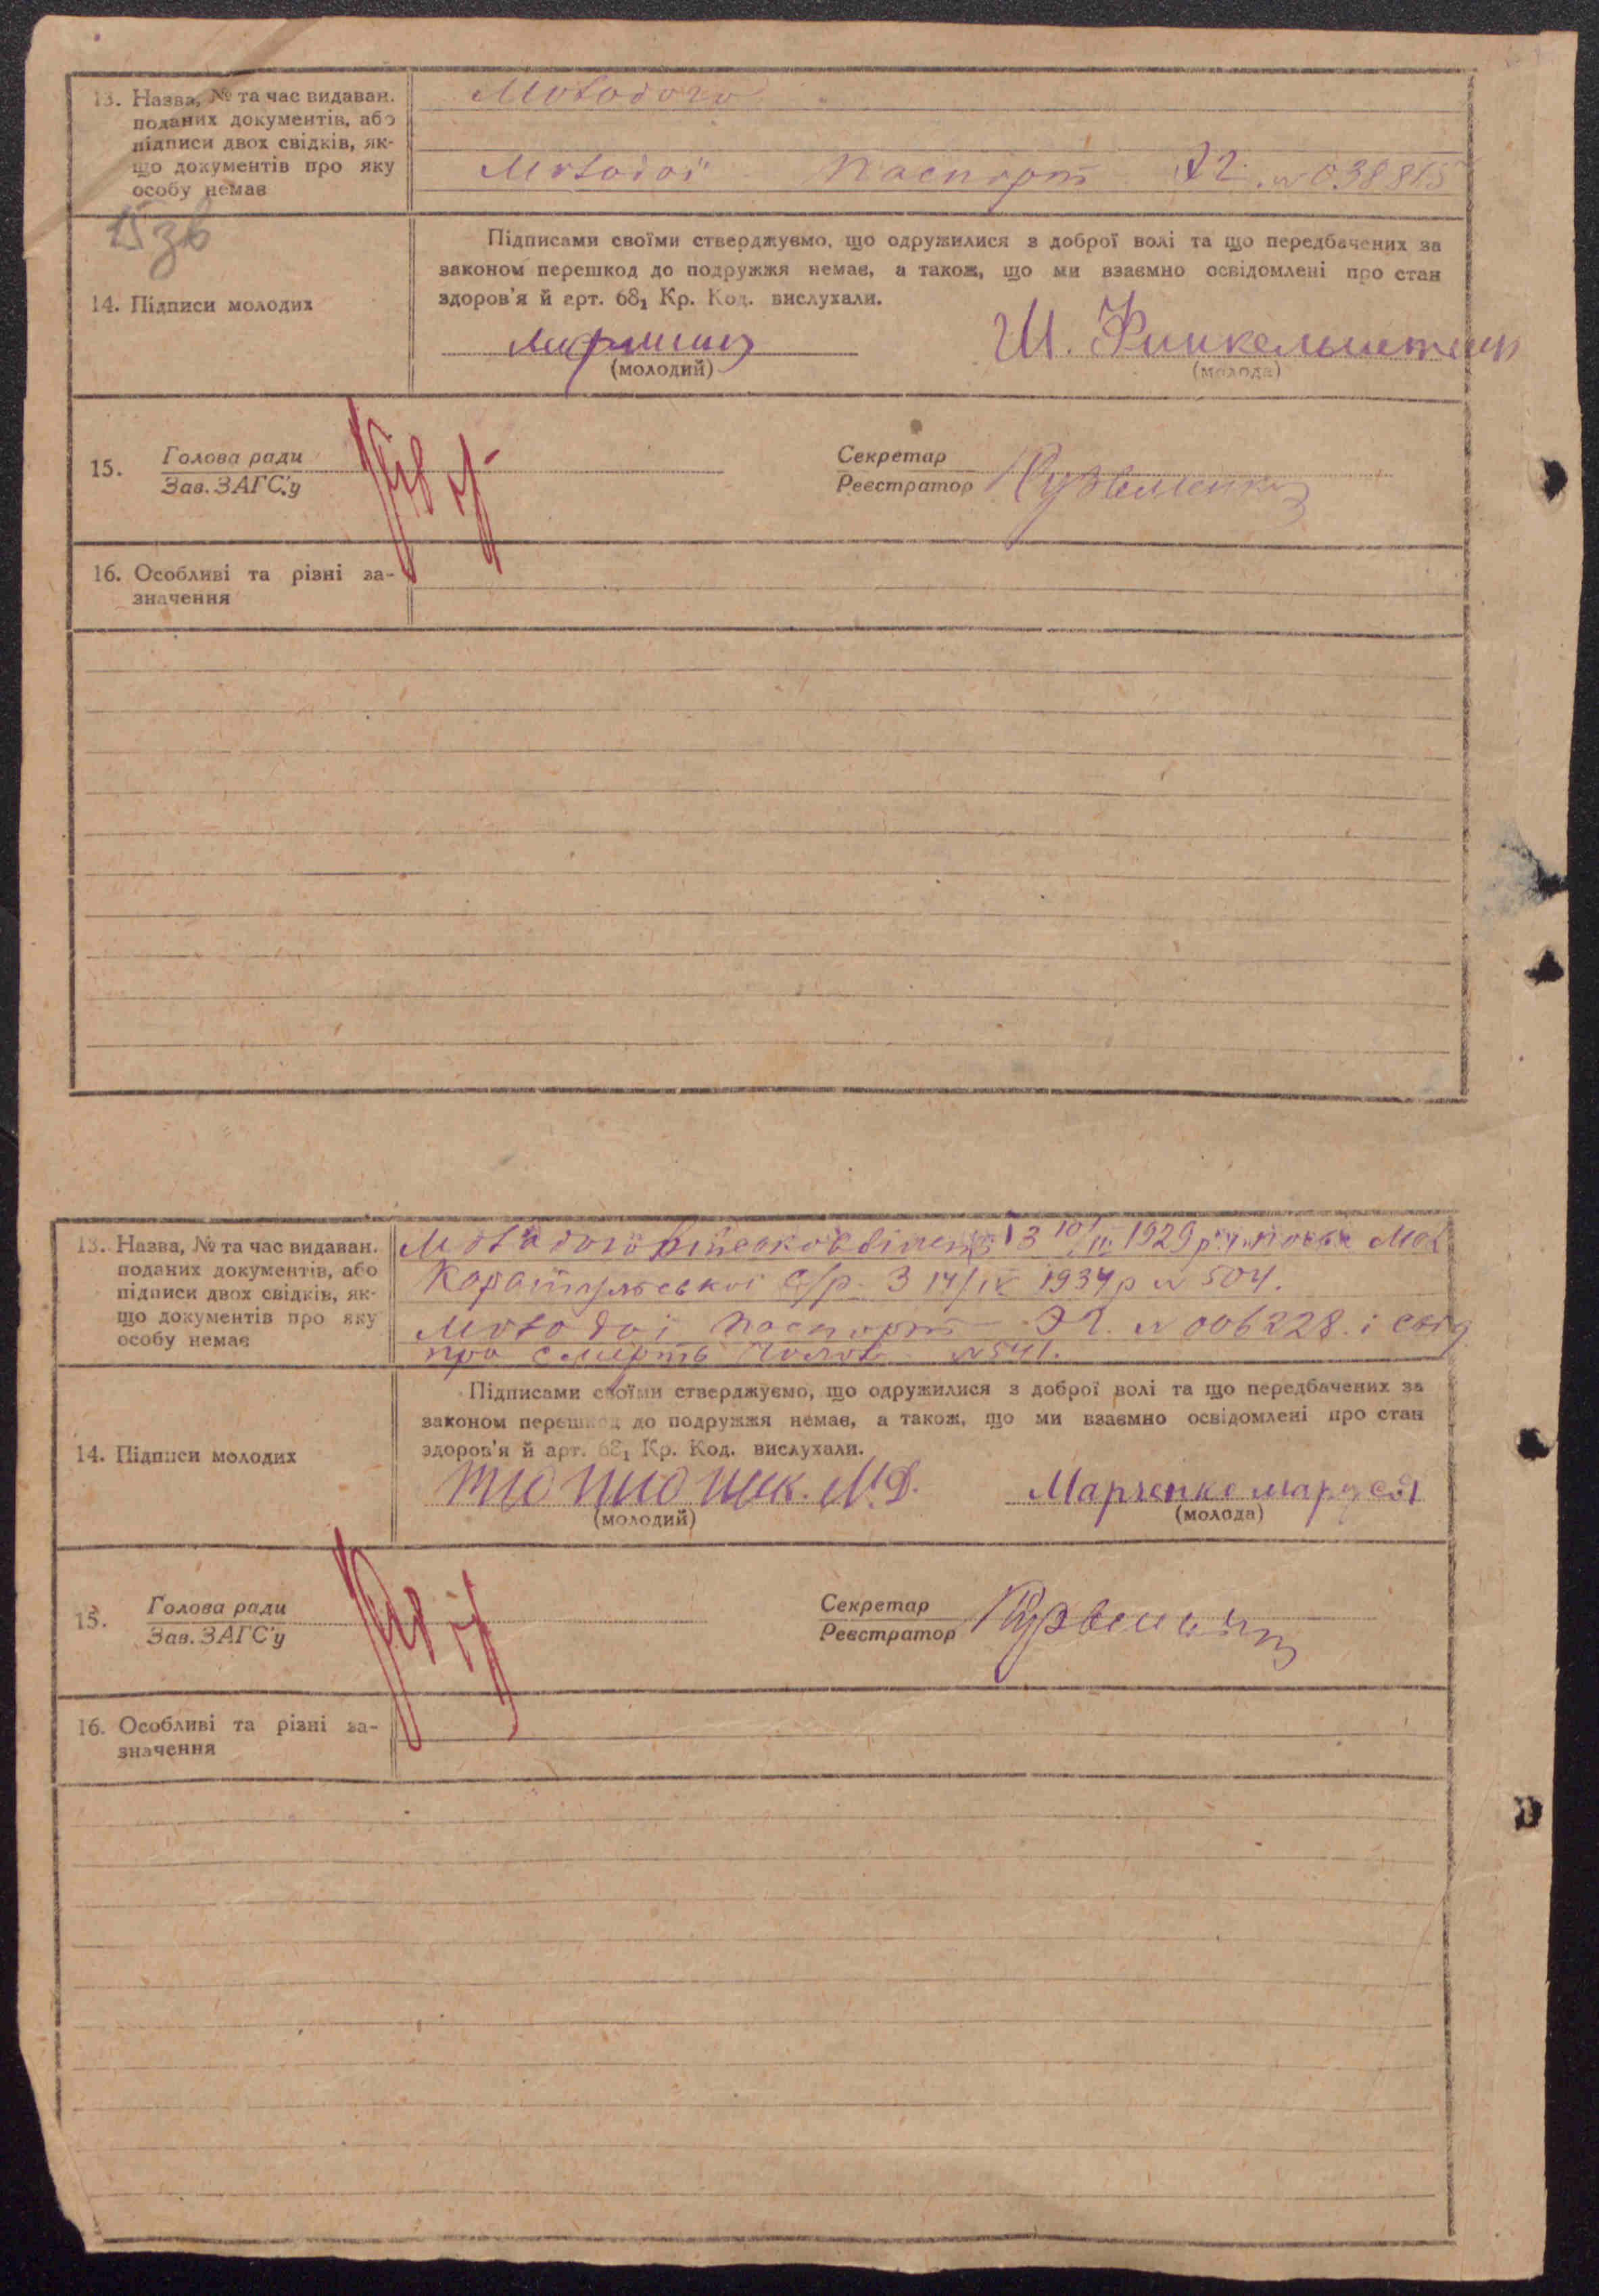 13. Назва, № та час видаван.
поданих документів, або
підписи двох свідків, як-
що документів про яку
особу немає
Молодого
Молодої Паспорт № 038815
15зв
14. Підписи молодих
Підписами своїми стверджуємо, що одружилися з доброї волі та що передбачених за
законом перешкод до подружжя немає, а також, що ми взаємно освідомлені про стан
здоров'я й арт. 68₁ Кр. Код. вислухали.
Ш. Финкельштейн
(молодий)
(молода)
15.
Голова ради
Зав. ЗАГС'у
Секретар
Реєстратор
16. Особливі та різні за-
значення
13. Назва, № та час видаван.
поданих документів, або
підписи двох свідків, як-
що документів про яку
особу немає
Молодого з 10/ 1929 р.
с/р. з 14/IV 1934 р № 504.
Молодої паспорт № 006228. і свід
про смерть № 541.
14. Підписи молодих
Підписами своїми стверджуємо, що одружилися з доброї волі та що передбачених за
законом перешкод до подружжя немає, а також, що ми взаємно освідомлені про стан
здоров'я й арт. 68₁ Кр. Код. вислухали.
Тютюнник. М.Д.
Марченко маруся
(молодий)
(молода)
15.
Голова ради
Зав. ЗАГС'у
Секретар
Реєстратор
16. Особливі та різні за-
значення